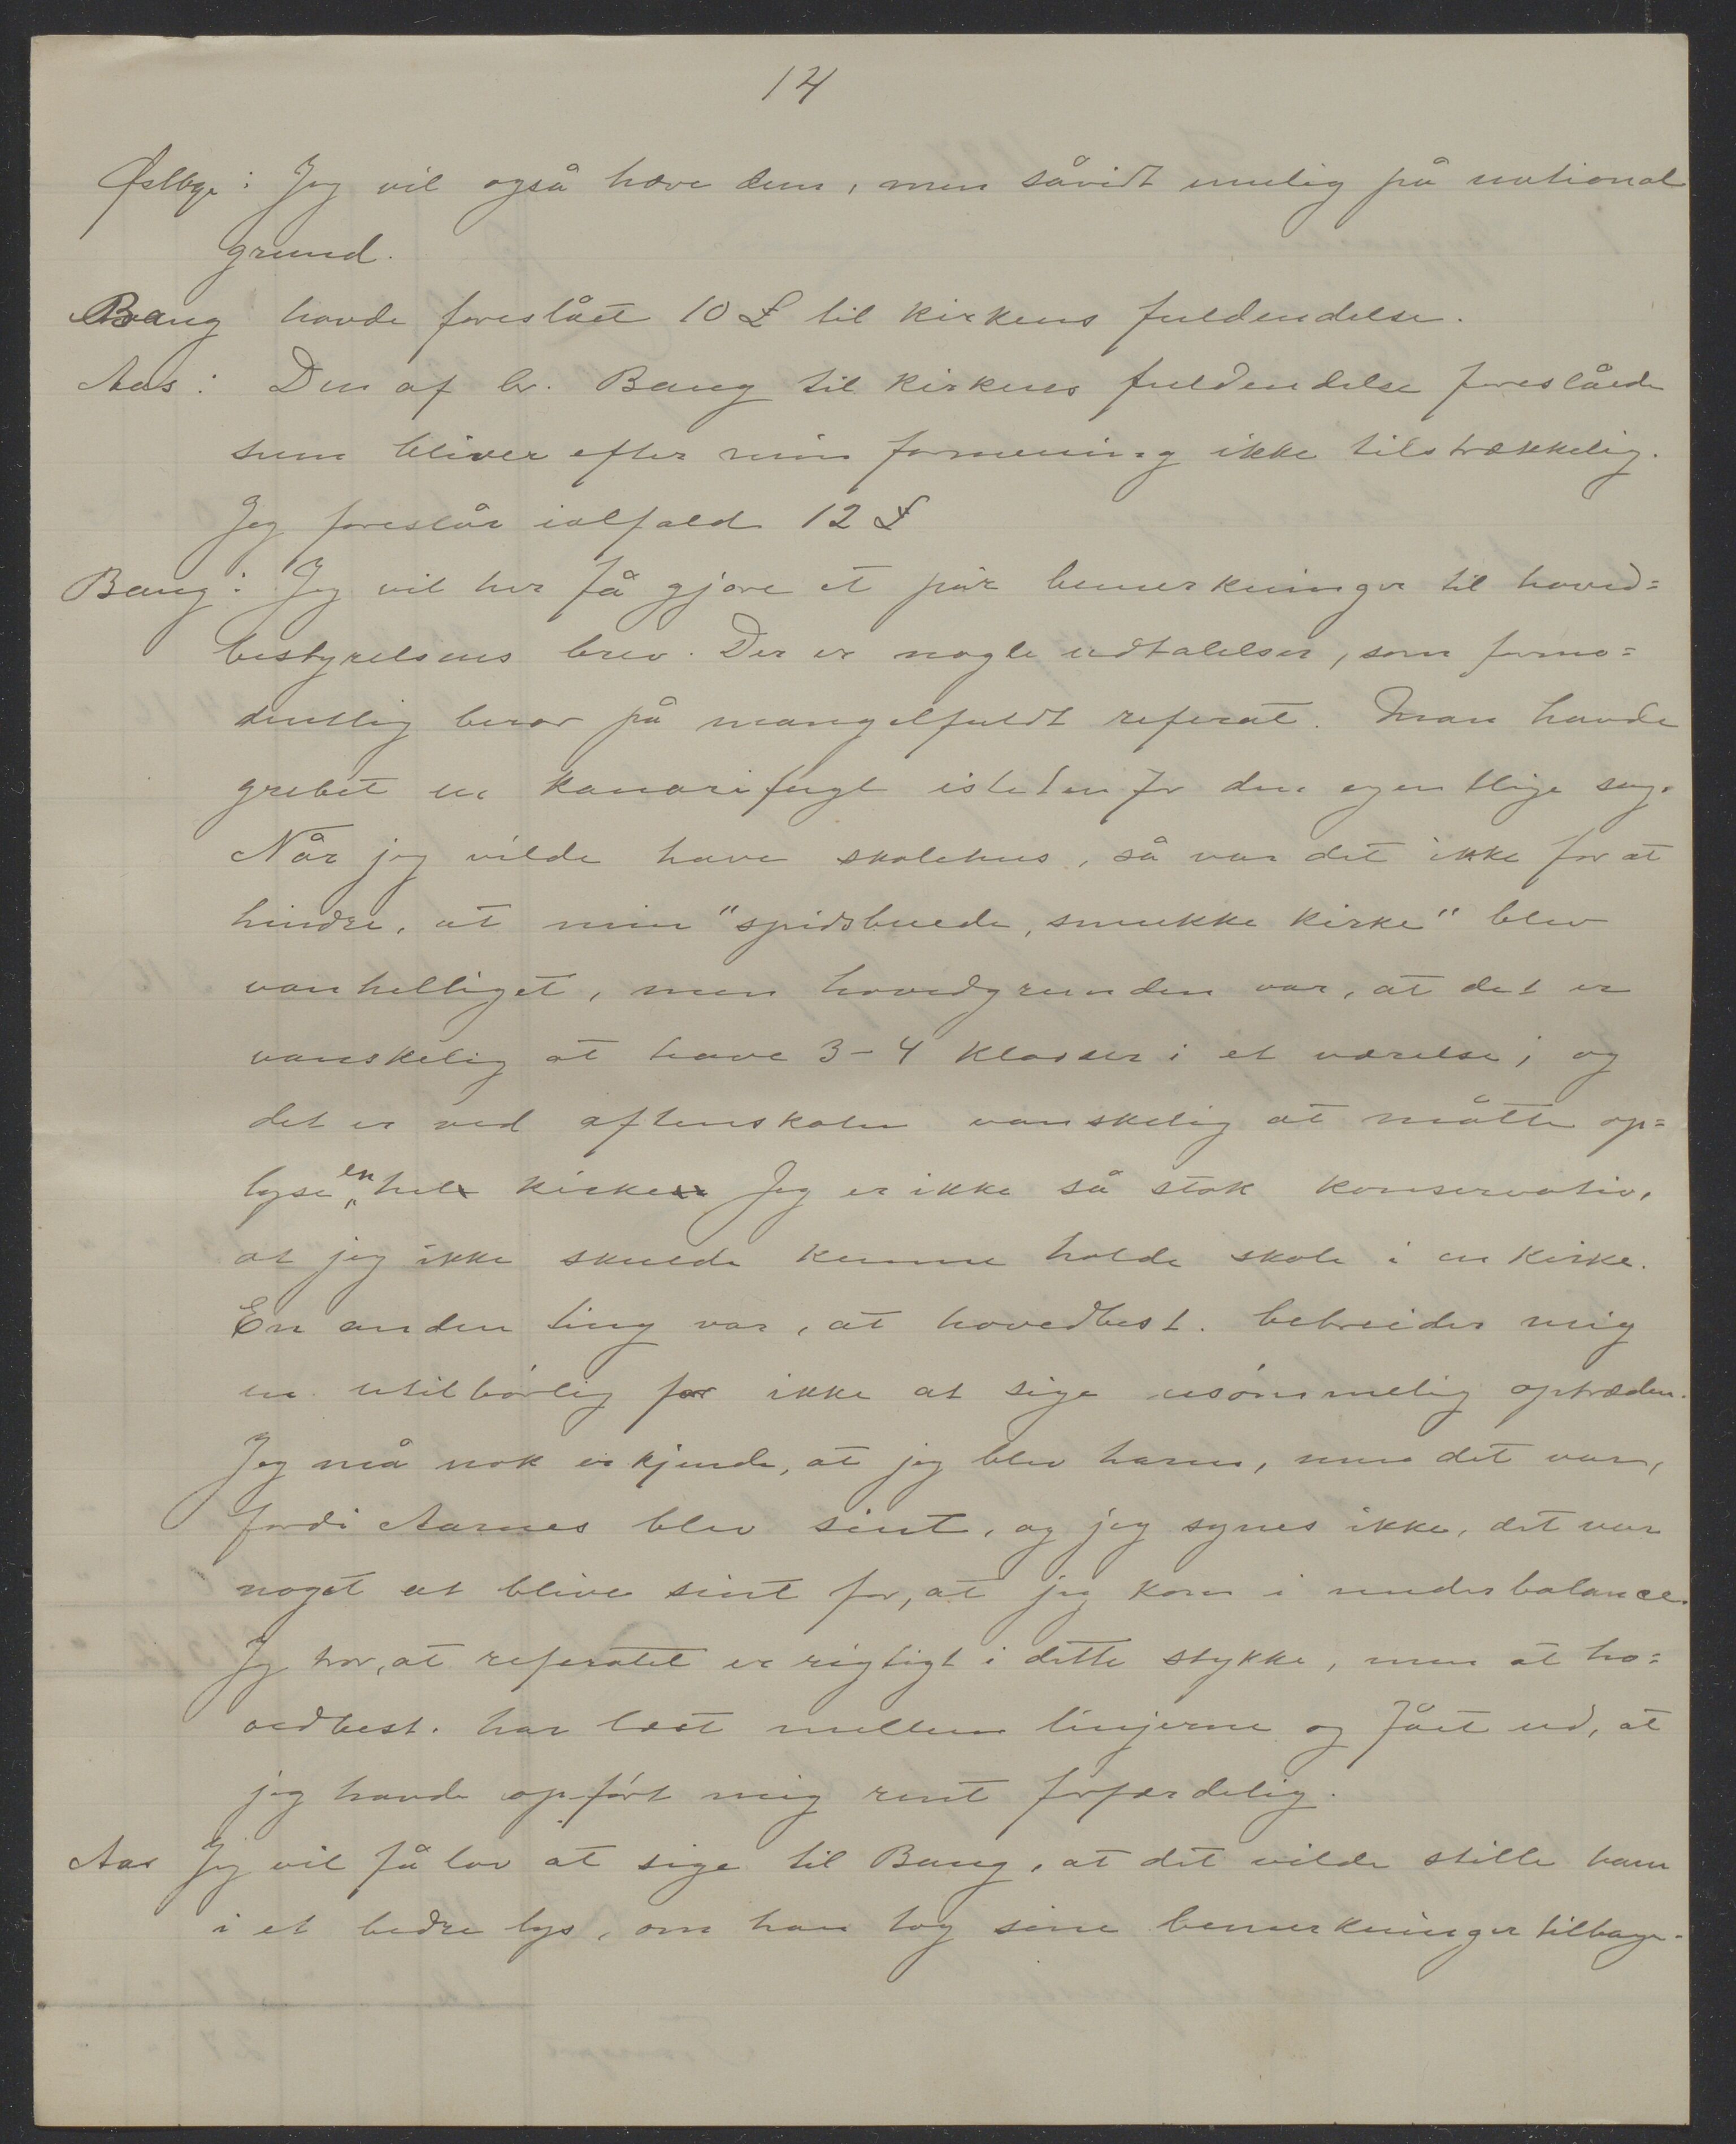 14
Østbye: Jeg vil også hæve dem, men såvidt mulig på national
grund.
Bang havde foreslået 10 £ til kirkens fuldendelse.
Aas: Den af br. Bang til kirkens fuldendelse foreslåede
sum bliver efter min formening ikke tilstrækkelig.
Jeg foreslår ialfald 12 £
Bang: Jeg vil her få gjøre et par bemerkninger til hoved=
bestyrelsens brev. Der er nogle udtalelser, som formo=
dentlig beror på mangelfuldt referat. Man havde
grebet en kanarifugl istedenfor den egentlige sag.
Når jeg vilde have skolehus, så var det ikke for at
hindre, at min "spidsbuede, smukke kirke" blev
vanhelliget, men hovedgrunden var, at det er
vanskelig at have 3-4 klasser i et værelse; og
det er ved aftenskolen vanskelig at måtte op=
lyse en hel kirke. Jeg er ikke så stok konservativ,
at jeg ikke skulde kunne holde skole i en kirke.
En anden ting var, at hovedbest. bebreider mig
en utilbørlig for ikke at sige usømmelig optræden.
Jeg må nok erkjende, at jeg blev harm, men det var,
fordi Aarnes blev sint, og jeg synes ikke, det var
noget at blive sint for, at jeg kom i underbalance.
Jeg tror, at referatet er rigtigt i dette stykke, men at ho=
vedbest. har læst mellem linjerne og fået ud, at
jeg havde opført mig rent forfærdelig.
Aas Jeg vil få lov at sige til Bang, at det vilde stille ham
i et bedre lys, om han tog sine bemerkninger tilbage.